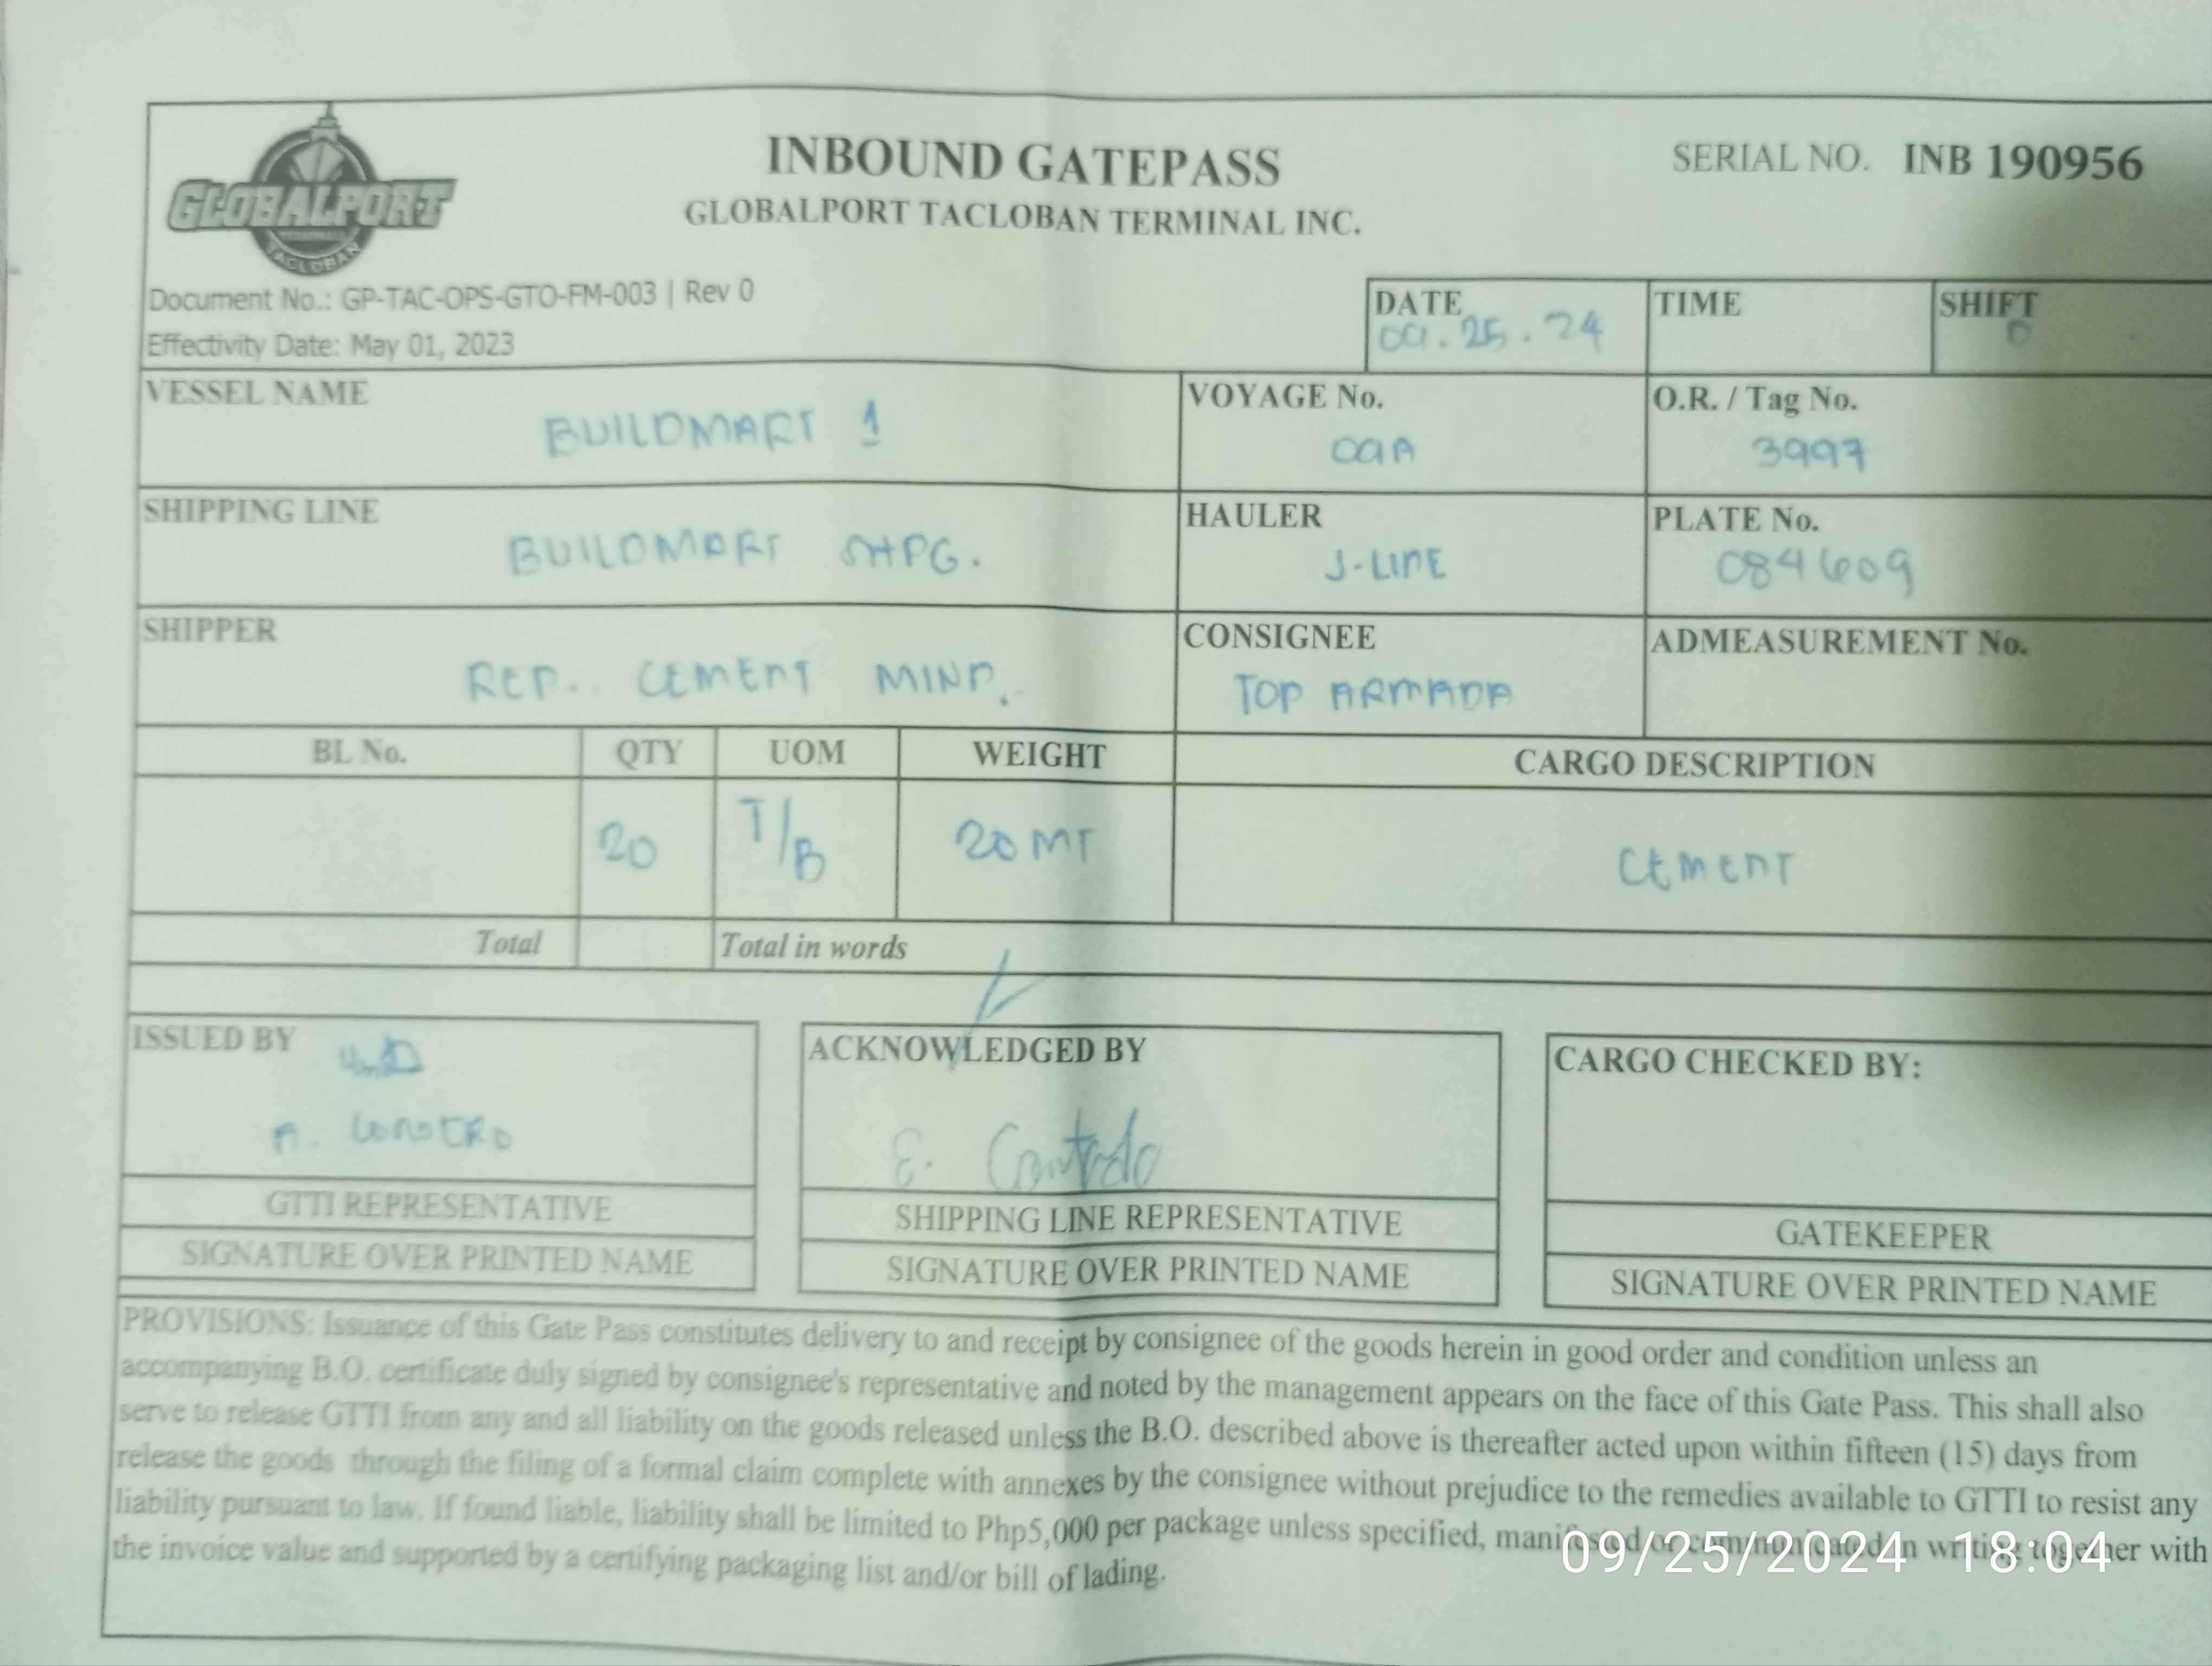 GLOBALPORT
TERMINALS
TACLOBAN
INBOUND GATEPASS
GLOBALPORT TACLOBAN TERMINAL INC.
SERIAL NO. INB 190956
Document No.: GP-TAC-OPS-GTO-FM-003 | Rev 0
Effectivity Date: May 01, 2023
DATE TIME SHIFT
09.25.24 D
VESSEL NAME VOYAGE No. O.R. / Tag No.
BUILDMART 1 09A 3997
SHIPPING LINE HAULER PLATE No.
BUILDMART SHPG. J-LINE 084609
SHIPPER CONSIGNEE ADMEASUREMENT No.
REP. CEMENT MIND. TOP ARMADA
BL No. QTY UOM WEIGHT CARGO DESCRIPTION
20 T/B 20 MT CEMENT
Total Total in words
ISSUED BY ACKNOWLEDGED BY CARGO CHECKED BY:
A. E.
GTTI REPRESENTATIVE SHIPPING LINE REPRESENTATIVE GATEKEEPER
SIGNATURE OVER PRINTED NAME SIGNATURE OVER PRINTED NAME SIGNATURE OVER PRINTED NAME
PROVISIONS: Issuance of this Gate Pass constitutes delivery to and receipt by consignee of the goods herein in good order and condition unless an
accompanying B.O. certificate duly signed by consignee's representative and noted by the management appears on the face of this Gate Pass. This shall also
serve to release GTTI from any and all liability on the goods released unless the B.O. described above is thereafter acted upon within fifteen (15) days from
release the goods through the filing of a formal claim complete with annexes by the consignee without prejudice to the remedies available to GTTI to resist any
liability pursuant to law. If found liable, liability shall be limited to Php5,000 per package unless specified, manifested or communicated in writing together with
the invoice value and supported by a certifying packaging list and/or bill of lading.
09/25/2024 18:04